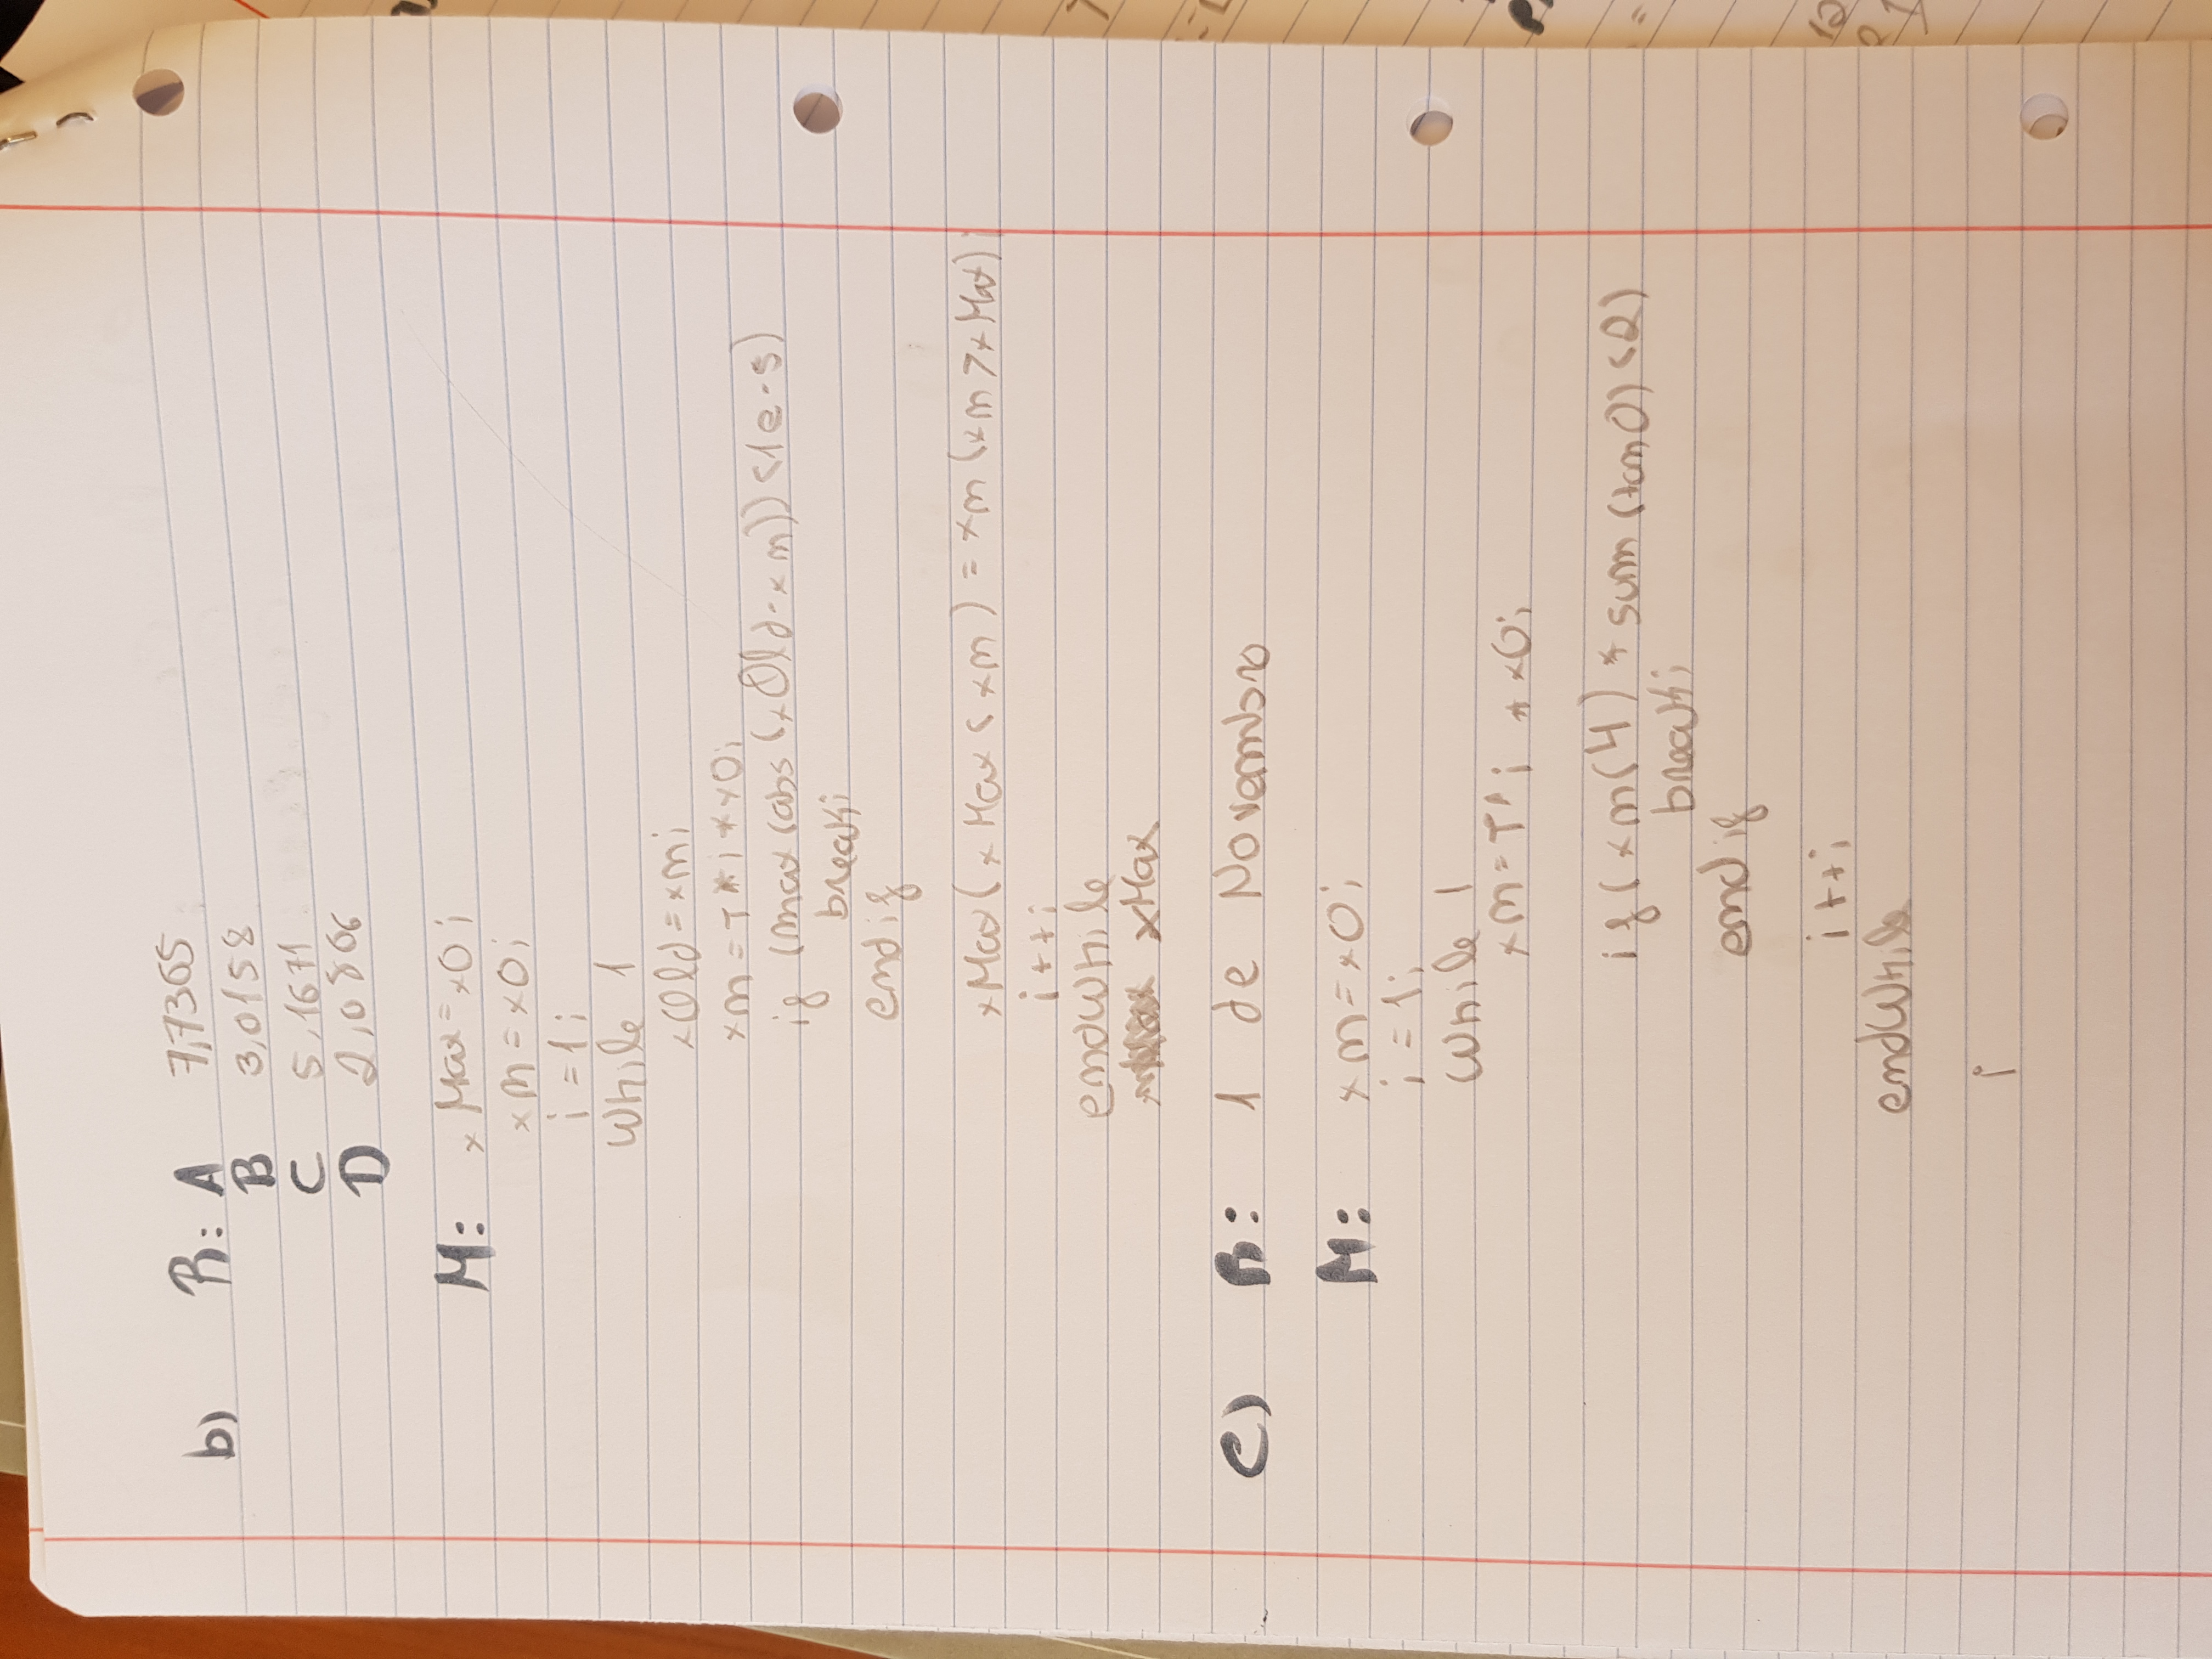 b) R: A 7,7365
B 3,0158
C 5,1671
D 2,0806
M: xMax = x0;
xn = x0;
i = 1;
while 1
xOld = xn;
xn = T * i * x0;
if (max (abs (xOld - xn)) < 1e-5)
break;
endif
xMax (xMax < xn) = xn (xn > xMax);
i++;
endwhile
xMax
c) R: 1 de Novembro
M: xn = x0;
i = 1;
while 1
xn = T^i * x0;
if (xn(4) * sum (tan0) < 2)
break;
endif
i++;
endwhile
i